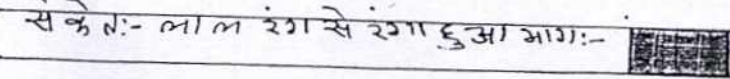 संकेत:- लाल रंग से रंगा हुआ भाग:-